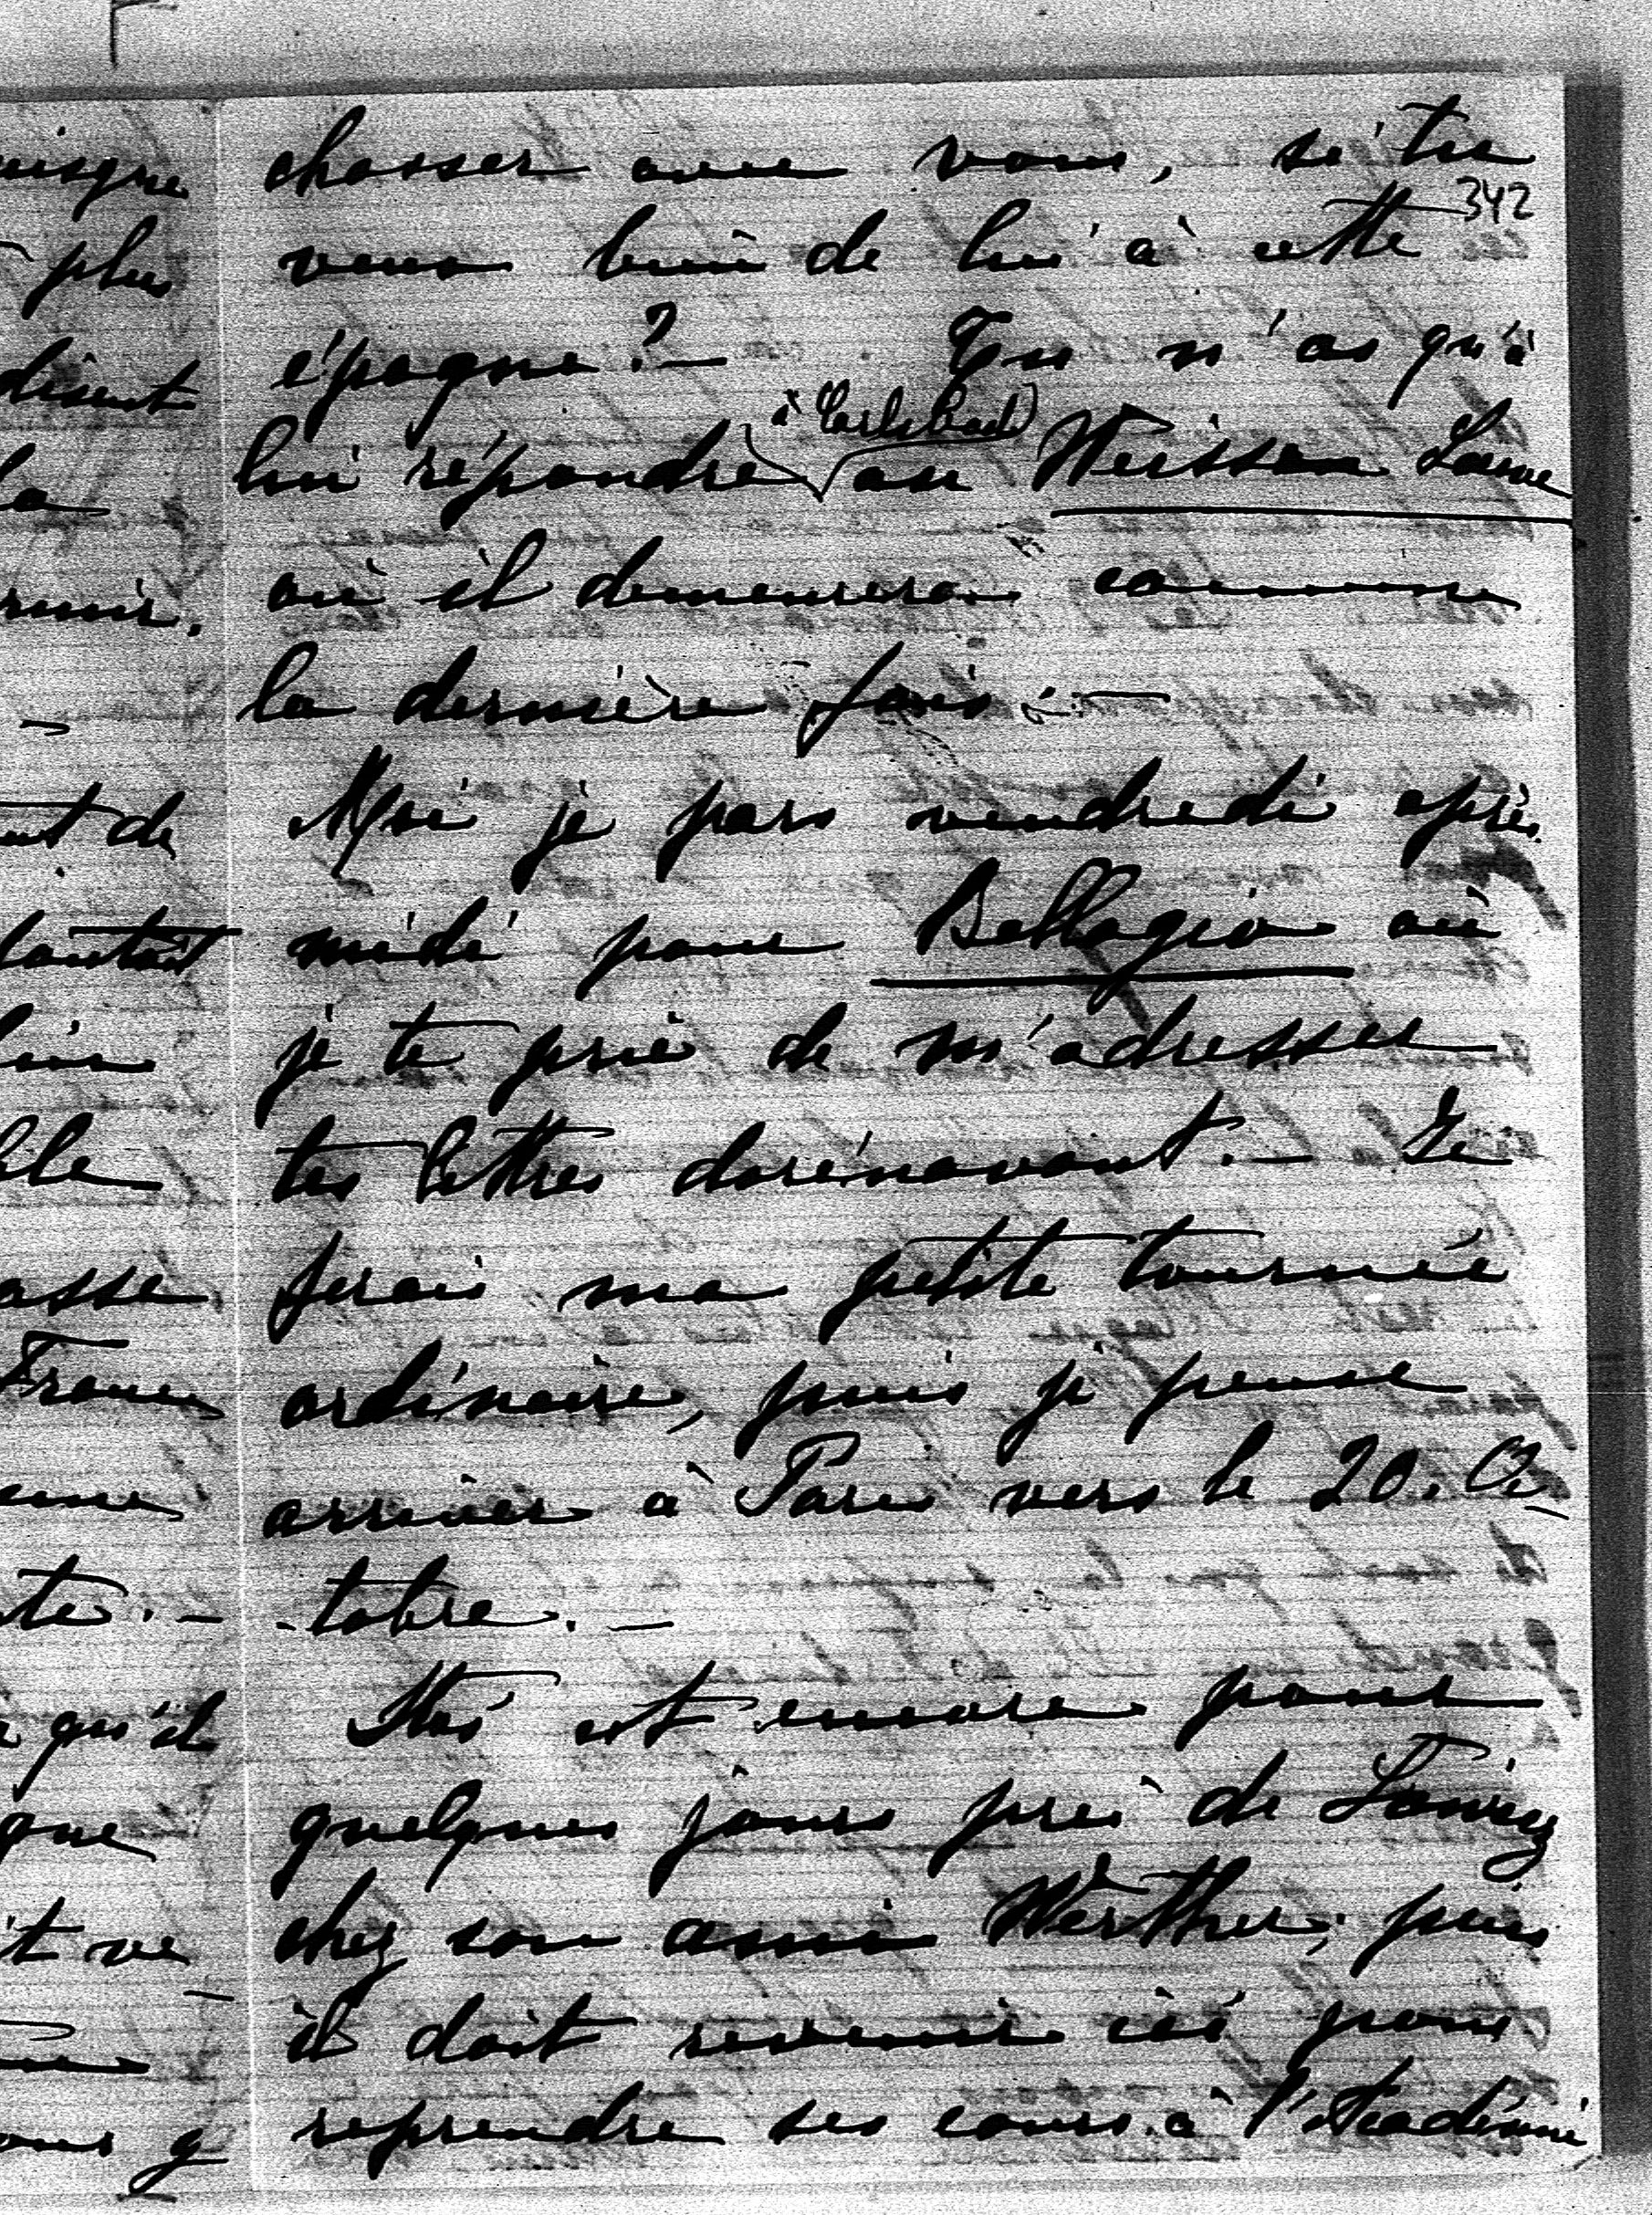 chasser avec vous, si tu
342
veux bien de lui à cette
époque? — Tu n'as qu'à
à Carlsbad
lui répondre au Weisser Löwe
où il demeurera comme
la dernière fois. —
Moi je pars vendredi après
midi pour Bellagio où
je te prie de m'adresser
tes lettres dorénavant. — Je
ferai ma petite tournée
ordinaire, puis je pense
arriver à Paris vers le 20. Oc
-tobre. —
est encore pour
quelques jours près de
chez son ami Werther, puis
il doit revenir ici pour
reprendre ses cours à l'Académie
uisque
plus
disent
la
-
nt de
ble
asse
France
te. —
qu'il
que
it ve